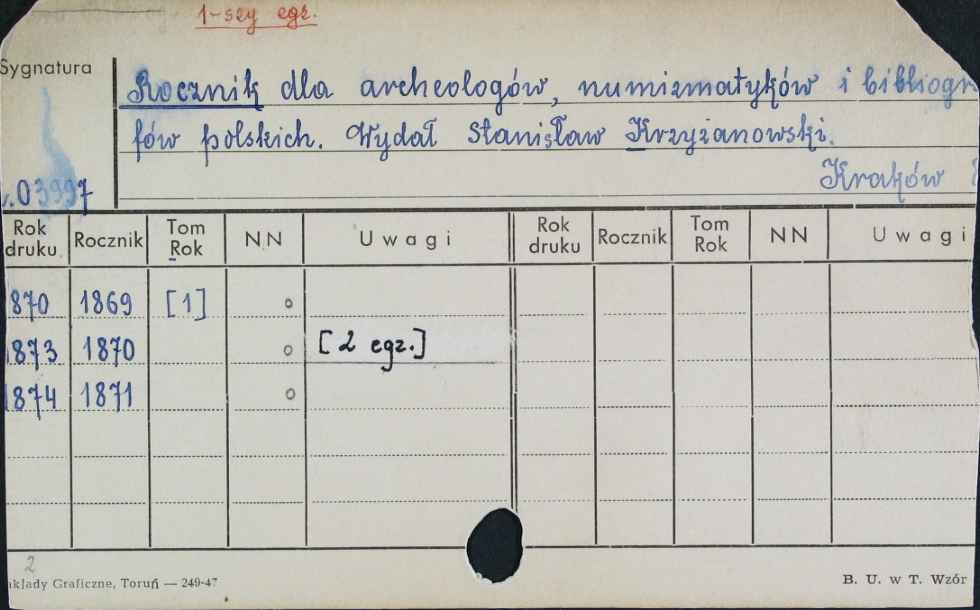 1-szy egz.
Sygnatura
Rocznik dla archeologów, numizmatyków i bibliogr
fów polskich. Wydał Stanisław Krzyżanowski.
Kraków
03997
Rok druku Rocznik Tom Rok NN Uwagi Rok druku Rocznik Tom Rok NN Uwagi
870 1869 [1] o
1873 1870 o [2 egz.]
1874 1871 o
2
akłady Graficzne, Toruń — 249-47
B. U. w T. Wzór